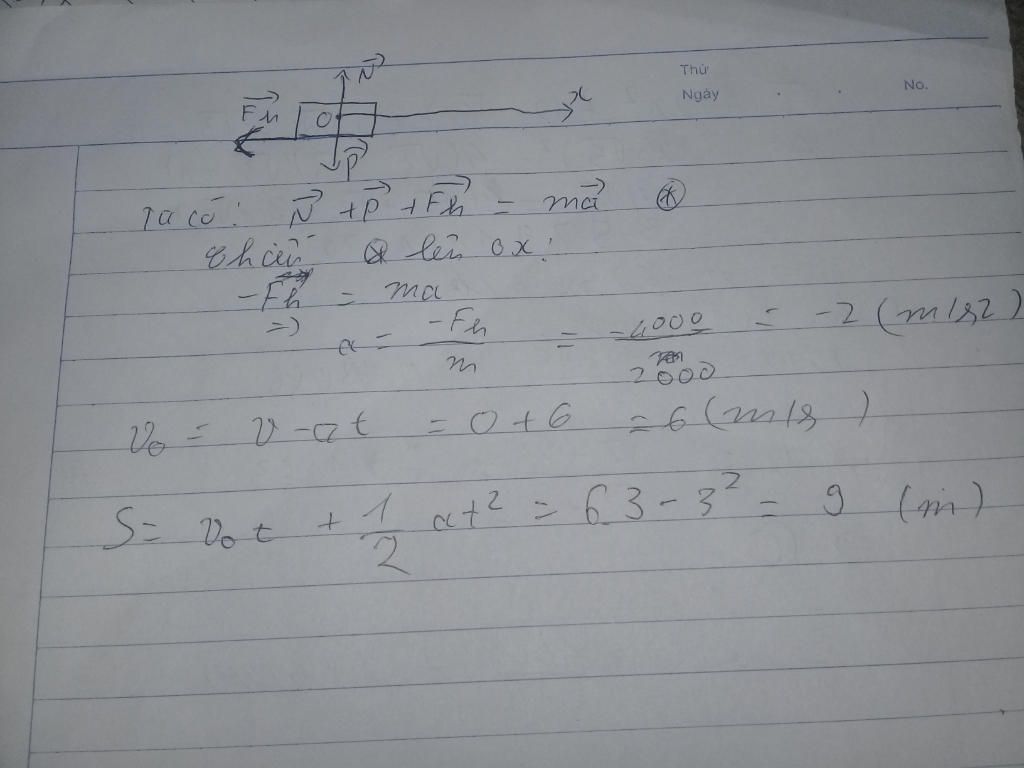 Thứ
Ngày . . No.
N⃗
F⃗h O x
P⃗
Ta có: N⃗ + P⃗ + F⃗h = ma⃗ ⊛
Chiếu ⊛ lên ox:
-Fh = ma
=> a = -Fh/m = -4000/2000 = -2 (m/s2)
v₀ = v - at = 0 + 6 = 6 (m/s)
S = v₀t + 1/2 at² = 6.3 - 3² = 9 (m)